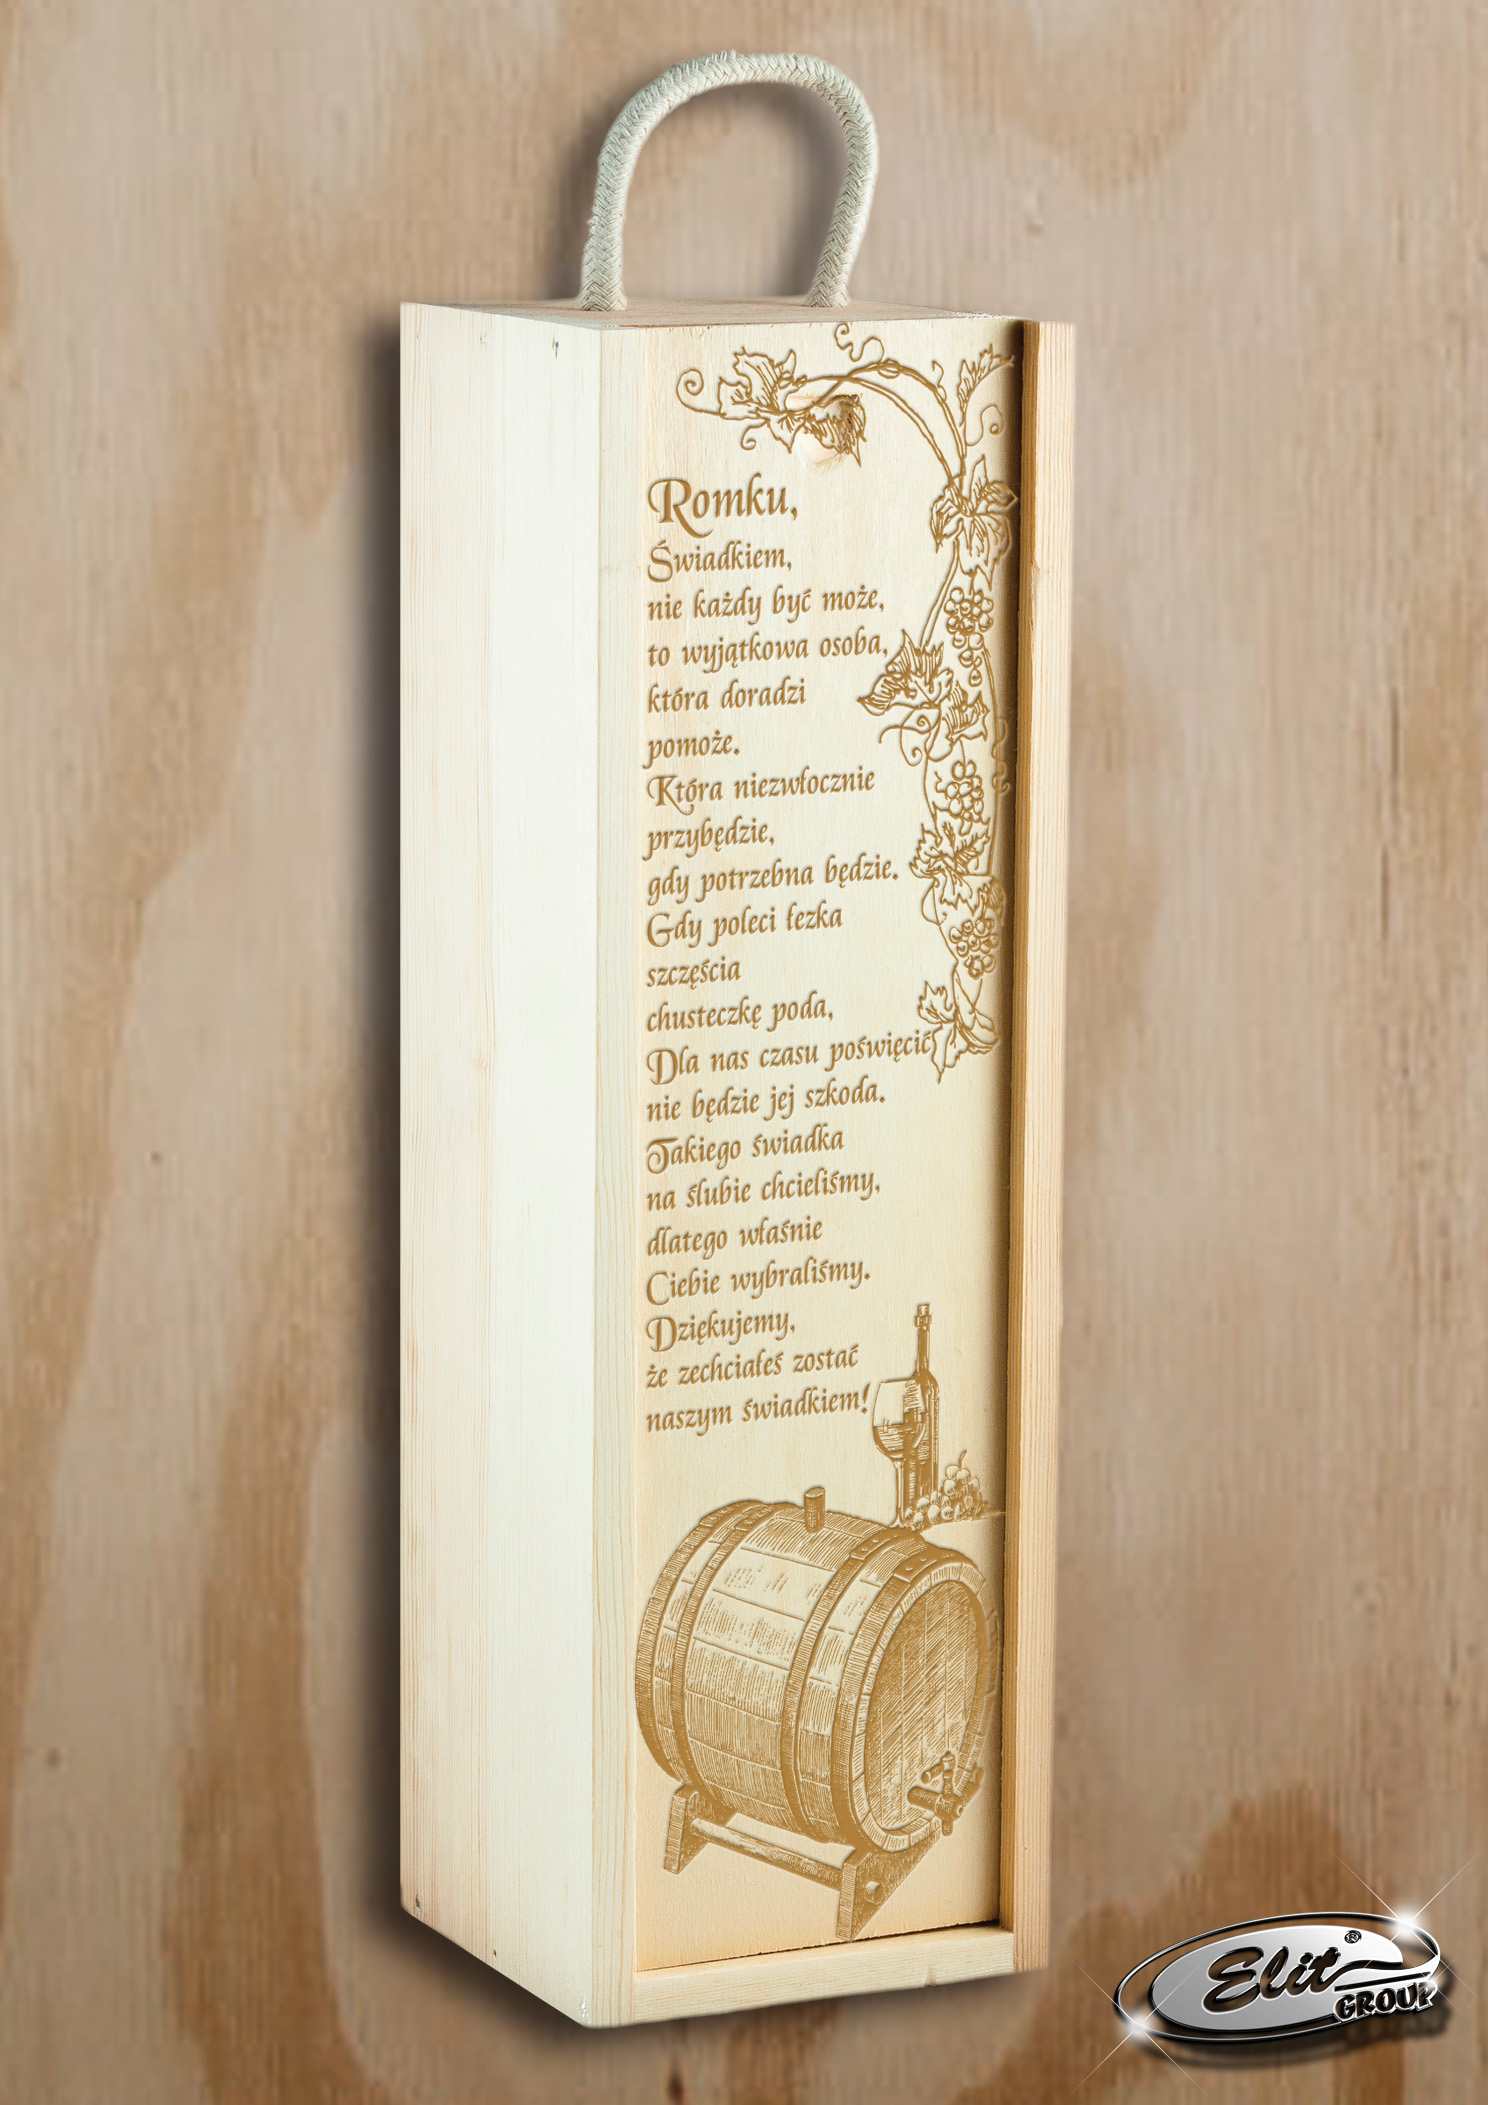 Romku,
Świadkiem,
nie każdy być może,
to wyjątkowa osoba,
która doradzi
pomoże.
Która niezwłocznie
przybędzie,
gdy potrzebna będzie.
Gdy poleci łezka
szczęścia
chusteczkę poda,
Dla nas czasu poświęcić
nie będzie jej szkoda.
Takiego świadka
na ślubie chcieliśmy,
dlatego właśnie
Ciebie wybraliśmy.
Dziękujemy,
że zechciałeś zostać
naszym świadkiem!
Elit®
GROUP